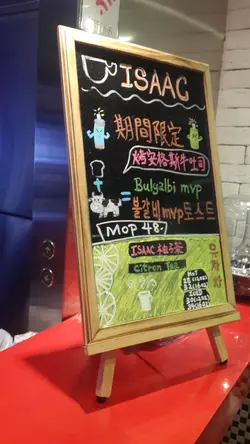 ISAAC
期間限定
烤安格斯牛吐司
Bulgalbi mvp
불갈비mvp토스트
Mop 48.
ISAAC 柚子茶
Citron Tea
유자차
HOT
ICED